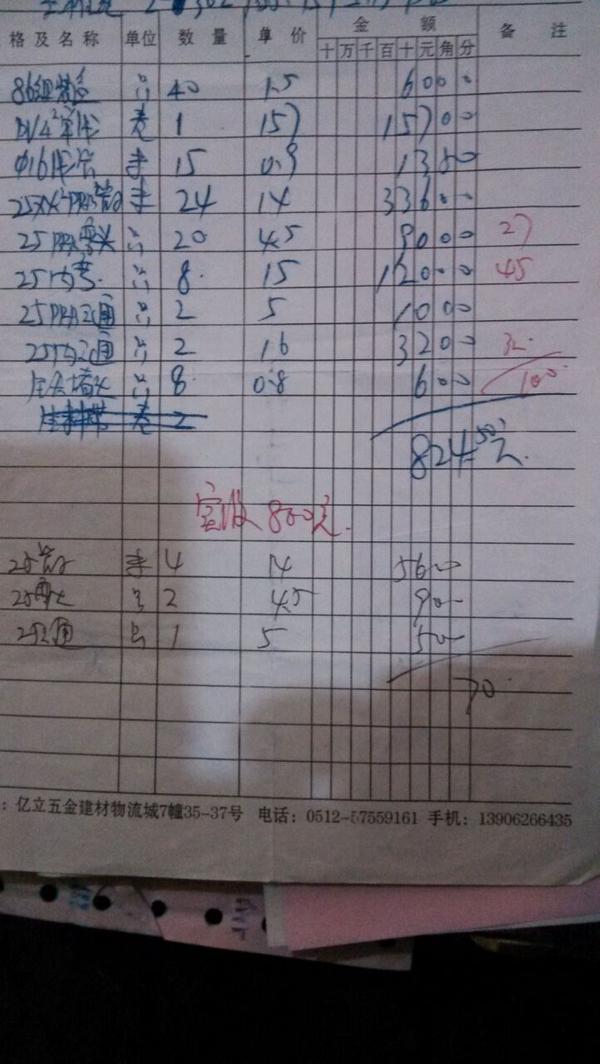 格及名称 单位 数量 单价 金额 备注
十 万 千 百 十 元 角 分
86组装盒 只 40 1.5 60 0 0
卷 1 157 157 0 0
15 0.9 13 5 0
24 14 336 0 0
25 PPR弯头 只 20 4.5 90 0 0 27
只 8. 15 120 0 0 45
25 PPR三通 只 2 5 10 0 0
只 2 16 32 0 0 32.
只 8 0.8 6 0 0 100.
生料带 卷 2
824.50元.
实收 800元.
25管 4 14 56 0 0
25弯头 只 2 4.5 9 0 0
25三通 只 1 5 5 0 0
70.
：亿立五金建材物流城7幢35-37号 电话：0512-57559161 手机：13906266435